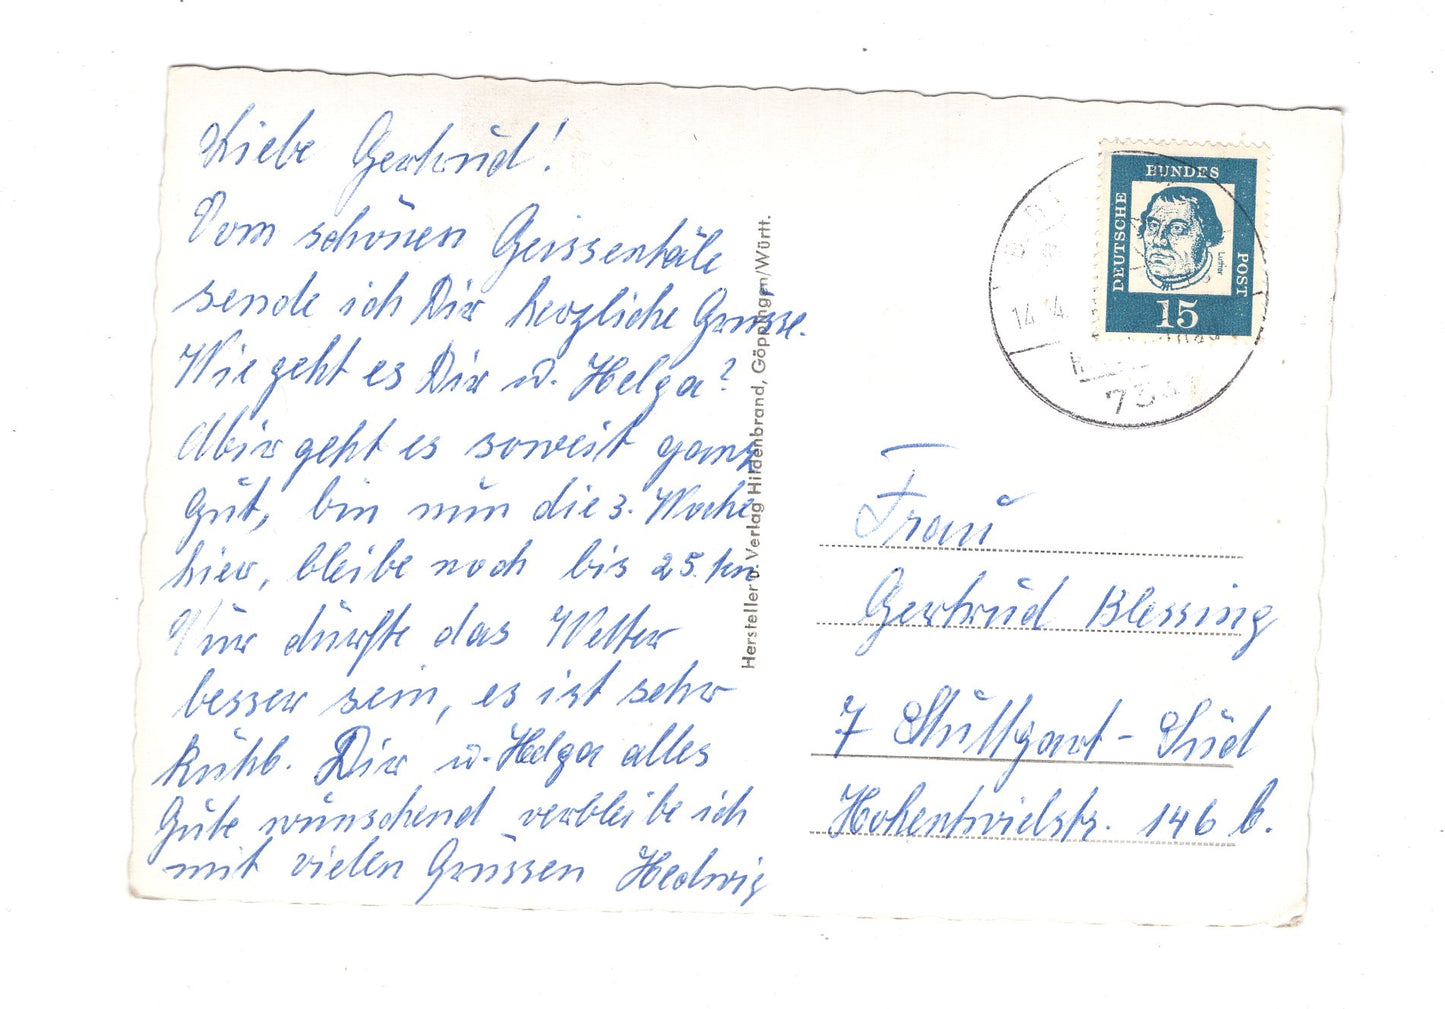 Liebe Gertrud!
Vom schönen Geissentäle
sende ich Dir herzliche Grüsse.
Wie geht es Dir u. Helga?
Mir geht es soweit ganz
gut, bin nun die 3. Woche
hier, bleibe noch bis 25. ten
Nur dürfte das Wetter
besser sein, es ist sehr
kühl. Dir u. Helga alles
Gute wünschend verbleibe ich
mit vielen Grüssen Hedwig
Hersteller u. Verlag Hildenbrand, Göppingen/Württ.
DEUTSCHE
BUNDES
POST
Luther
15
14. 4.
Frau
Gertrud Blessing
7 Stuttgart-Süd
Hohentwielstr. 146 b.